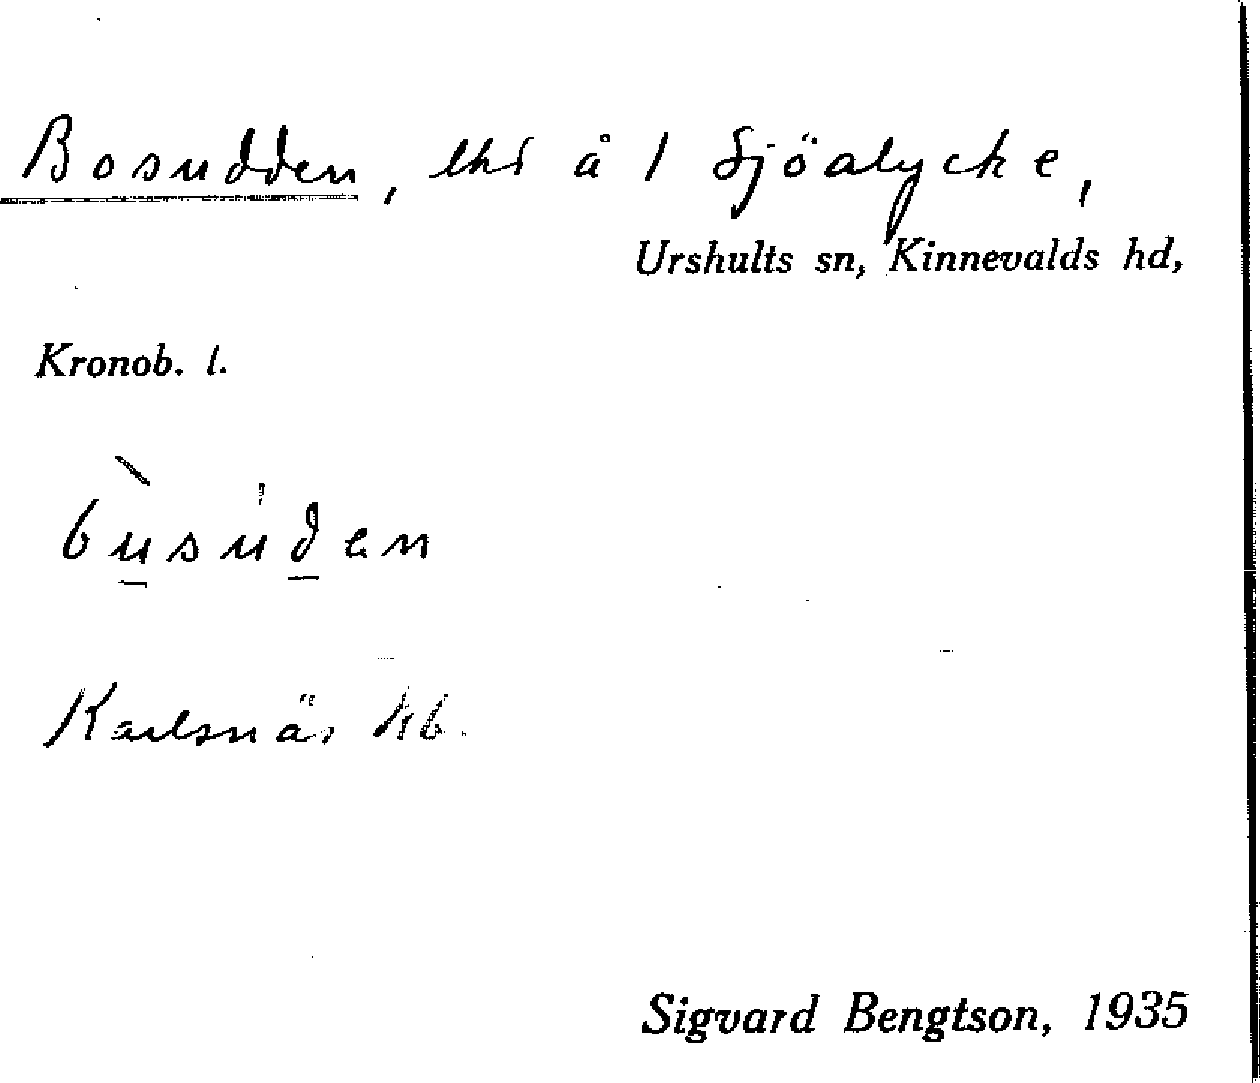 Bosudden, lhs å 1 Sjöalycke,
Urshults sn, Kinnevalds hd,
Kronob. l.
bùsu̍den
Karlsnäs
Sigvard Bengtson, 1935